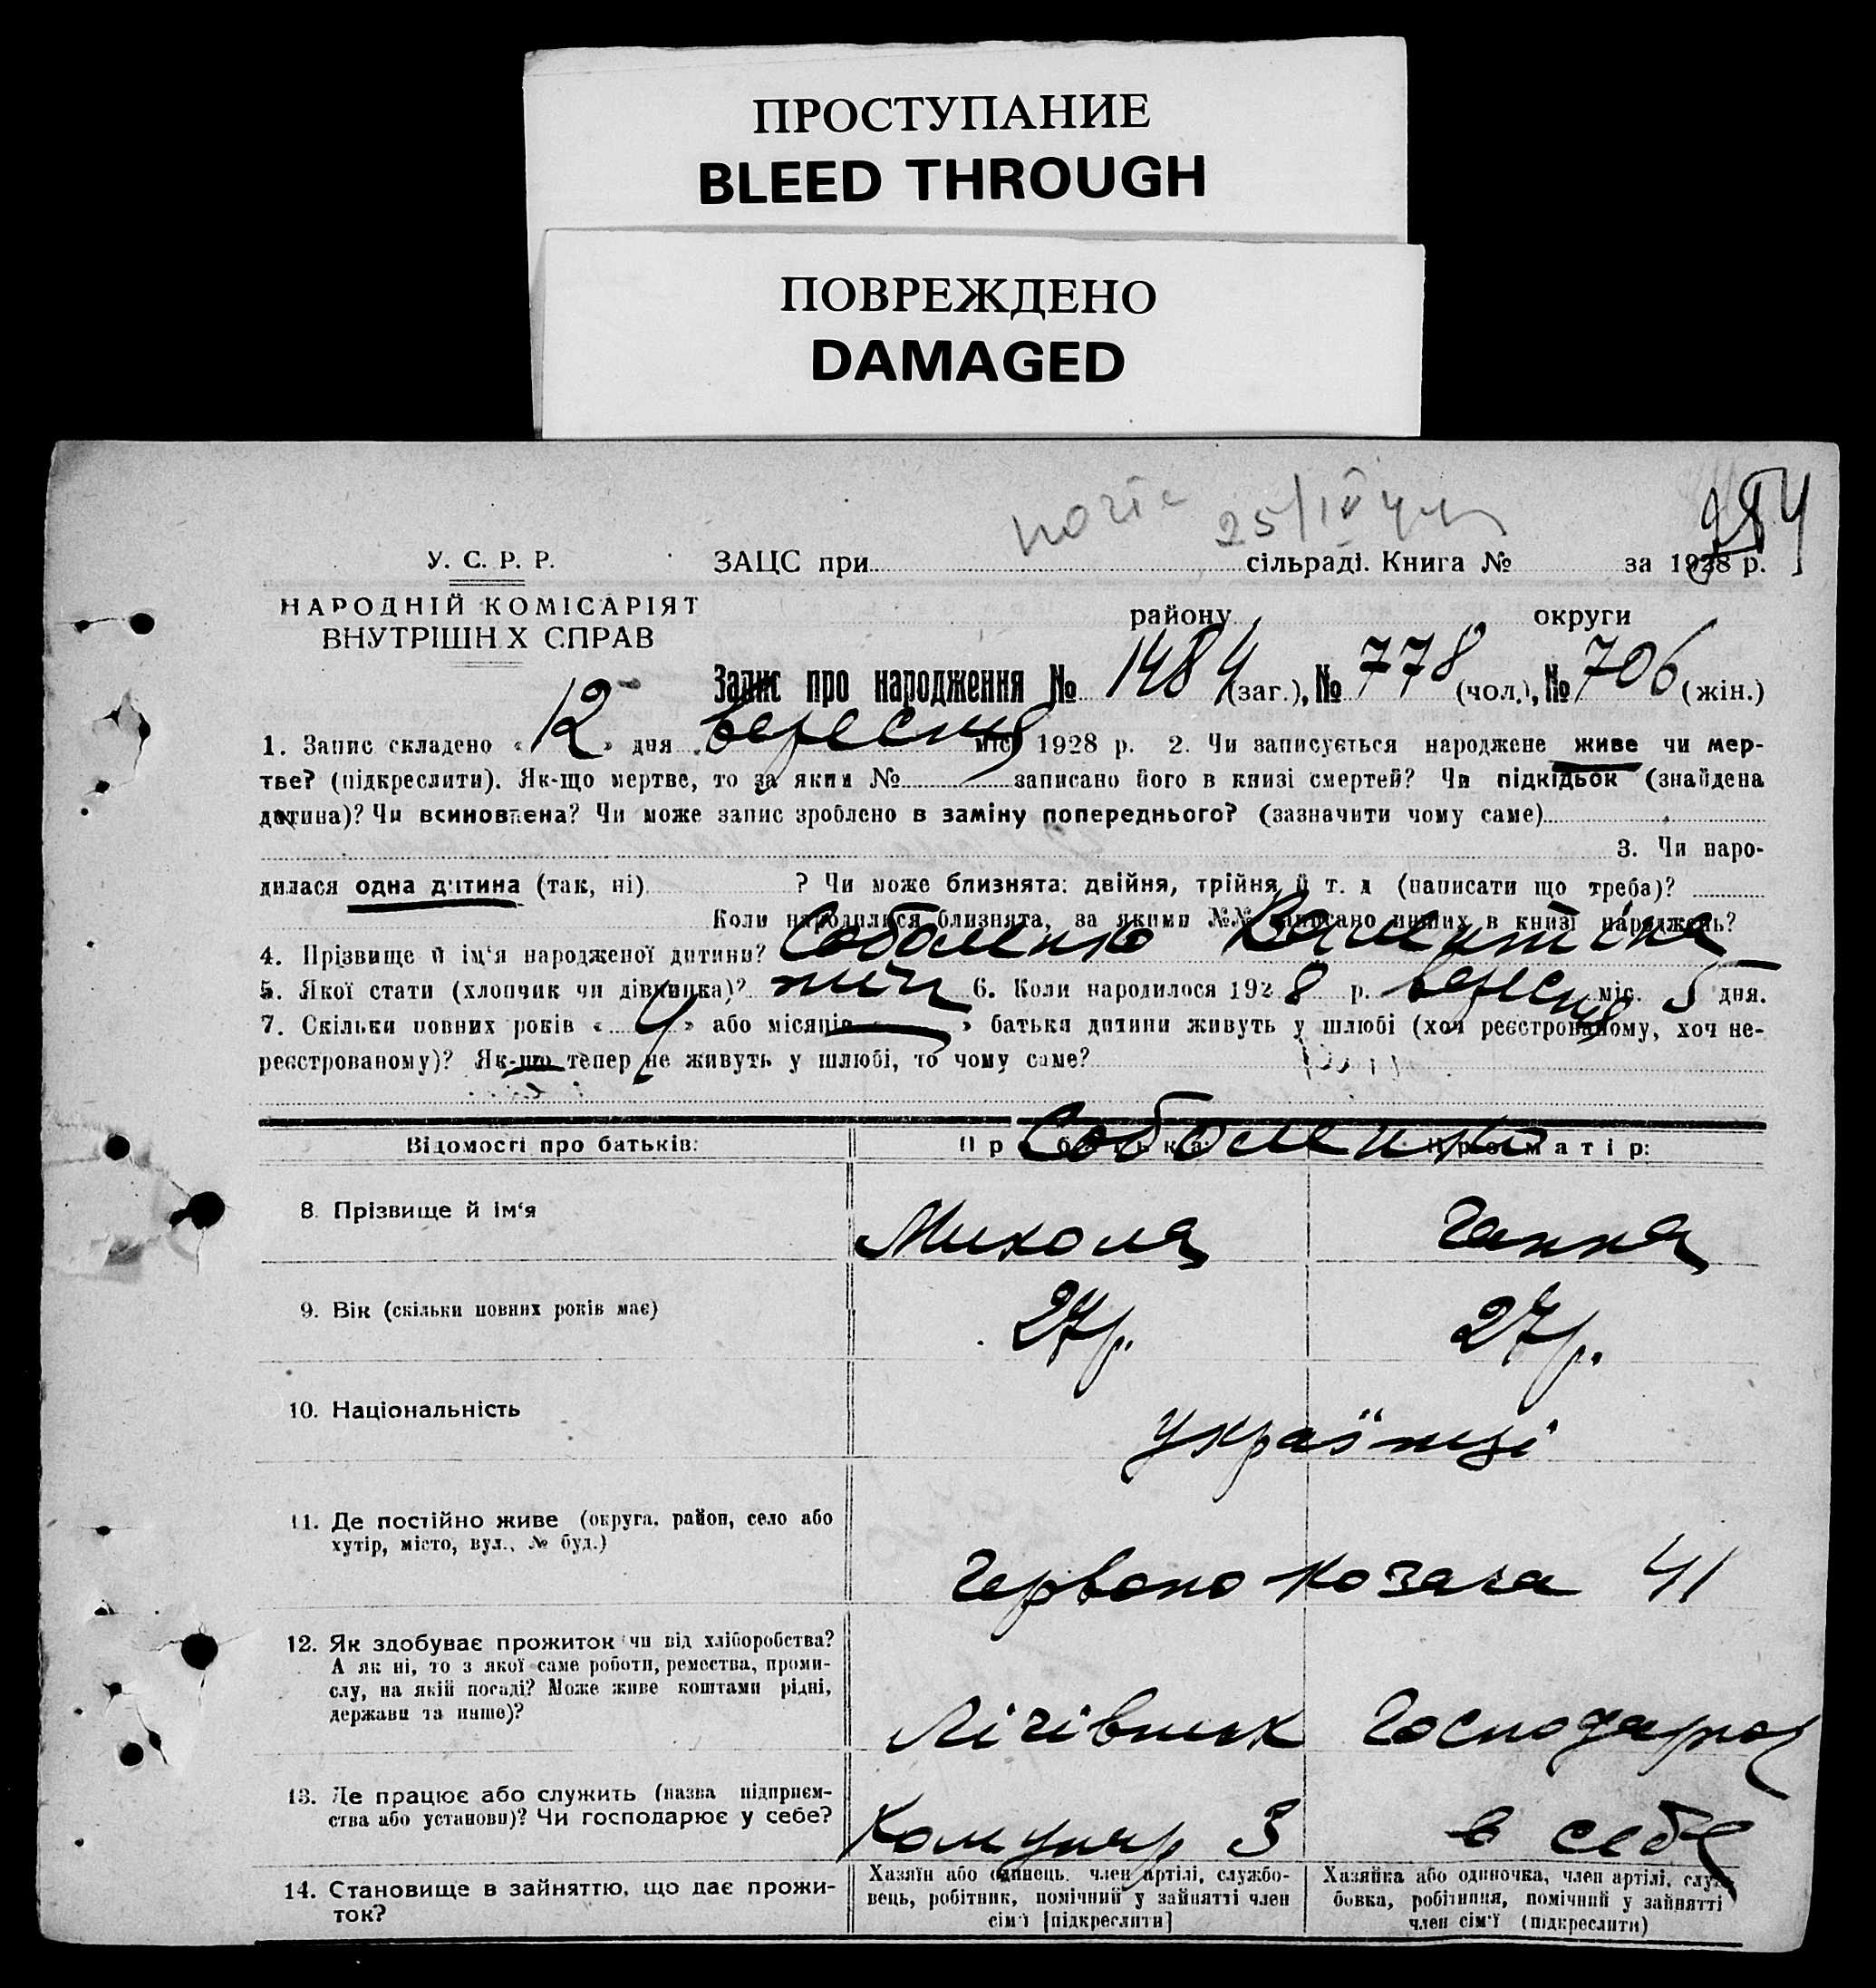 ПРОСТУПАНИЕ
BLEED THROUGH
ПОВРЕЖДЕНО
DAMAGED
25/IV
284
У. С. Р. Р.
НАРОДНІЙ КОМІСАРІЯТ
ВНУТРІШН Х СПРАВ
ЗАЦС при сільраді. Книга № за 1928 р.
району округи
Запис про народження № 1484 (заг.), № 778 (чол.), № 706 (жін.)
1. Запис складено « 12 » дня вересня міс. 1928 р. 2. Чи записується народжене живе чи мер-
тве? (підкреслити). Як-що мертве, то за яким № записано його в книзі смертей? Чи підкідьок (знайдена
дитина)? Чи всиновлена? Чи може запис зроблено в заміну попереднього? (зазначити чому саме)
3. Чи наро-
дилася одна дитина (так, ні) ? Чи може близнята: двійня, трійня й т. д (написати що треба)?
Коли народилися близнята, за якими №№ записано инших в книзі народжень?
4. Прізвище й ім'я народженої дитини? Соболенко Валентина
5. Якої стати (хлопчик чи дівчинка)? жін 6. Коли народилося 1928 р. вересня міс. 5 дня.
7. Скільки повних років « 4 » або місяців « » батьки дитини живуть у шлюбі (хоч реєстрованому, хоч не-
реєстрованому)? Як-що тепер не живуть у шлюбі, то чому саме?
Відомості про батьків: Про батька: Про матір:
Соболенко
8. Прізвище й ім'я Микола Ганна
9. Вік (скільки повних років має) 27 р. 27 р.
10. Національність українці
11. Де постійно живе (округа, район, село або
хутір, місто, вул., № буд.)
Червоно козача 41
12. Як здобуває прожиток чи від хліборобства?
А як ні, то з якої саме роботи, ремества, проми-
слу, на якій посаді? Може живе коштами рідні,
держави та инше)?
Лічівник Господарює
13. Де працює або служить (назва підприєм-
ства або установи)? Чи господарює у себе?
3 в себе
14. Становище в зайняттю, що дає прожи-
ток?
Хазяїн або одинець, член артілі, службо-
вець, робітник, помічний у зайнятті член
сім'ї [підкреслити]
Хазяйка або одиночка, член артілі, служ-
бовка, робітниця, помічний у зайнятті
член сім'ї (підкреслити)